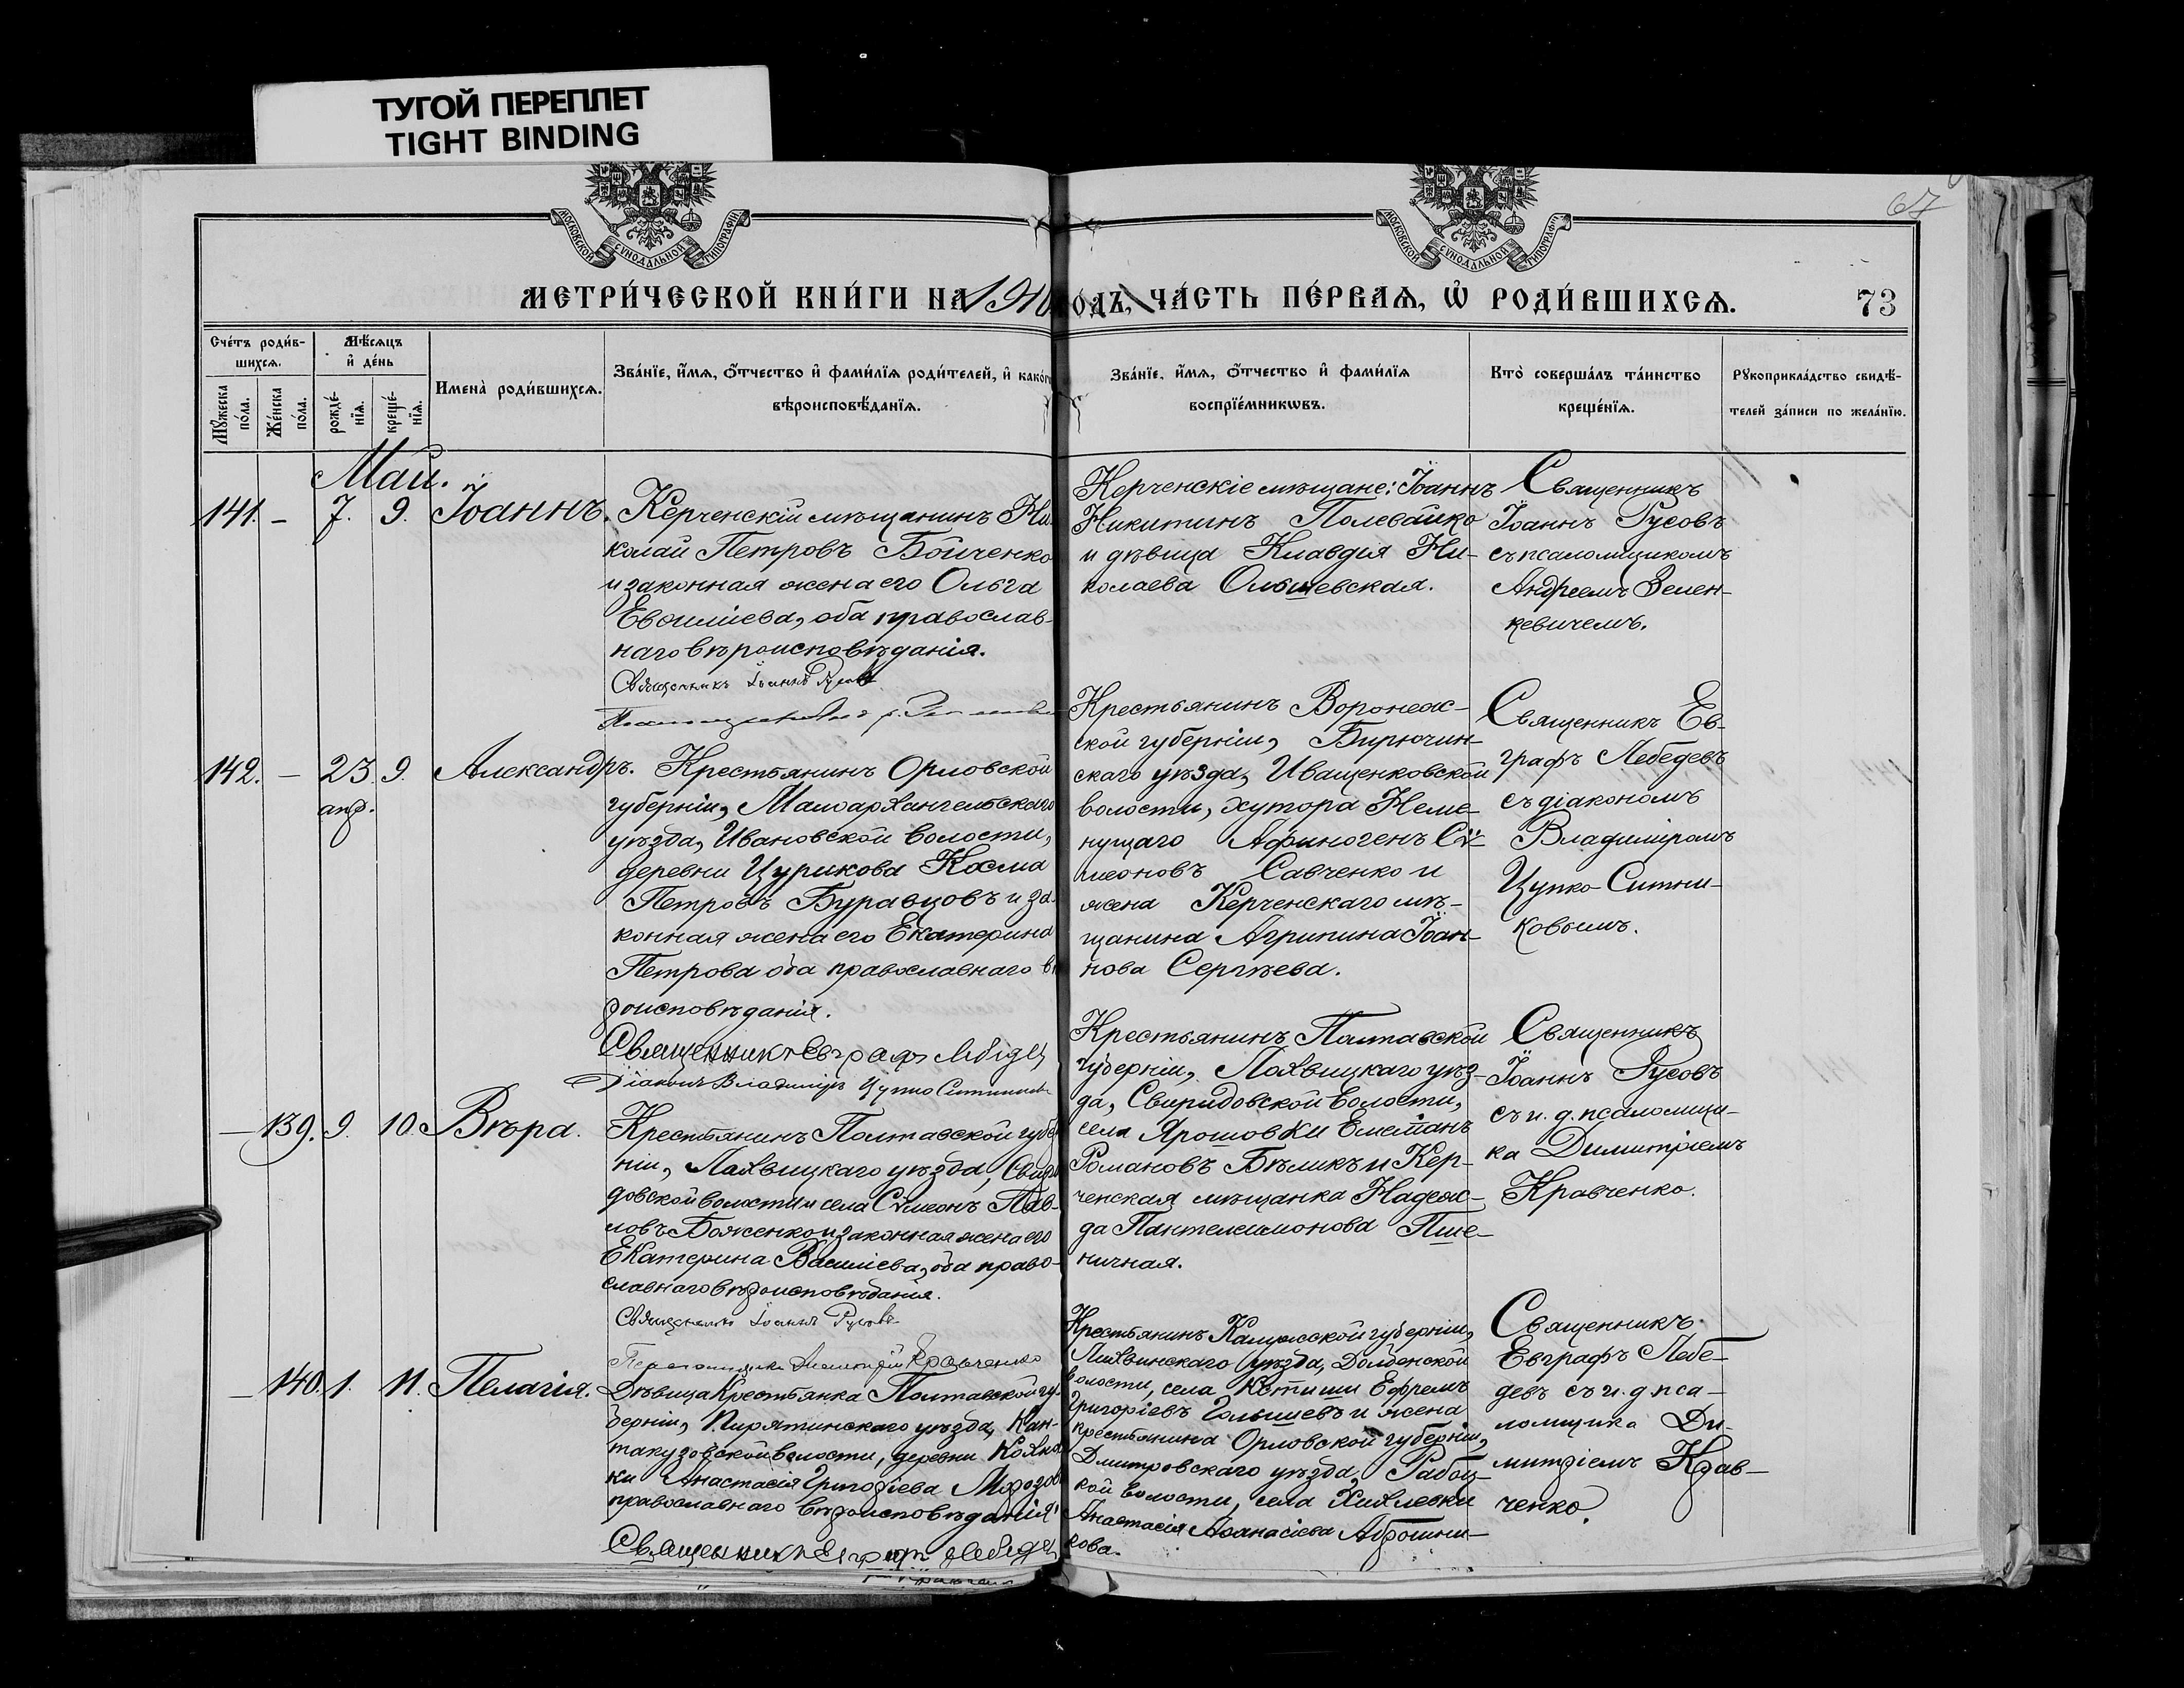 ТУГОЙ ПЕРЕПЛЕТ
TIGHT BINDING
МОСКОВСКОЙ СѴНОДАЛЬНОЙ ТИПОГРАФІИ
МОСКОВСКОЙ СѴНОДАЛЬНОЙ ТИПОГРАФІИ
67
МЕТРИ́ЧЕСКОЙ КНИ́ГИ НА 1910 ОДЪ, ЧА́СТЬ ПЕ́РВАѦ, Ѿ РОДИ́ВШИХСѦ.
73
Сче́тъ роди́в-
шихсѧ.
Мѣ́сѧцъ
и҆ де́нь
Мꙋ́жеска по́ла.
Же́нска по́ла.
рожде́-нїѧ.
креще́-нїѧ.
Имена̀ роди́вшихсѧ.
Зва́нїе, и҆́мѧ, ѻ҆́тчество и҆ фами́лїѧ роди́телей, и҆ како́г
вѣроисповѣ́данїѧ.
Зва́нїе, и҆́мѧ, ѻ҆́тчество и҆ фами́лїѧ
воспрїе́мникѡвъ.
Кто̀ соверша́лъ та́инство
креще́нїѧ.
Рꙋкоприкла́дство свидѣ́-
телей за́писи по жела́нїю.
Май.
141. - 7. 9. Іоаннъ.
Керченскій мѣщанинъ Ни-
колай Петровъ Бойченко
и законная жена его Ольга
Евѳиміева, оба православ-
наго вѣроисповѣданія.
Священникъ Іоаннъ Русовъ
Керченскіе мѣщане: Іоаннъ
Никитинъ Полевайко
и дѣвица Клавдія Ни-
колаева Ольшевская.
Священникъ
Іоаннъ Русовъ
съ псаломщикомъ
Андреемъ Зелен-
кевичемъ.
142. - 23 апр. 9. Александръ.
Крестьянинъ Орловской
губерніи, Малоархангельскаго
уѣзда, Ивановской волости,
деревни Цурикова Косма
Петровъ Буравцовъ и за-
конная жена его Екатерина
Петрова оба православнаго вѣ
роисповѣданія.
Священникъ Евграфъ Лебедев
Діаконъ Владиміръ Цупко Ситников
Крестьянинъ Воронеж-
ской губерніи, Бирючин-
скаго уѣзда, Иващенковской
волости, хутора Неме-
нущаго Афиногенъ Сѵ-
меоновъ Савченко и
жена Керченскаго мѣ-
щанина Агрипина Іоан-
нова Сергѣева.
Священникъ Ев-
графъ Лебедевъ
съ діакономъ
Владиміромъ
Цупко-Ситни-
ковымъ.
- 139. 9. 10. Вѣра.
Крестьянинъ Полтавской губер
ніи, Лохвицкаго уѣзда, Свири
довской волости и села Сѵмеонъ Пав-
ловъ Боженко и законная жена его
Екатерина Василіева, оба право-
славнаго вѣроисповѣданія.
Священникъ Іоаннъ Русовъ
Димитрій Кравченко
Крестьянинъ Полтавской
губерніи, Лохвицкаго уѣз-
да, Свиридовской волости,
села Ярошовки Емеліанъ
Романовъ Бѣликъ и Кер-
ченская мѣщанка Надеж-
да Пантелеимонова Пше-
ничная.
Священникъ
Іоаннъ Русовъ
съ и. д. псаломщи-
ка Димитріемъ
Кравченко.
- 140. 1. 11. Пелагія.
Дѣвица Крестьянка Полтавской гу-
берніи, Пирятинскаго уѣзда, Кан-
такузовской волости, деревни
ки Анастасія Григоріева Морозов
православнаго вѣроисповѣданія.
Священникъ Евграфъ Лебедев
Крестьянинъ Калужской губерніи,
Лихвинскаго уѣзда, Долбенской
волости, села Кстищи Ефремъ
Григоріевъ Голышевъ и жена
крестьянина Орловской губерніи,
Дмитровскаго уѣзда,
кой волости, села Хивлевки
Анастасія Аѳанасіева Аброши-
кова.
Священникъ
Евграфъ Лебе-
девъ съ и. д. пса-
ломщика Ди-
митріемъ Крав-
ченко.